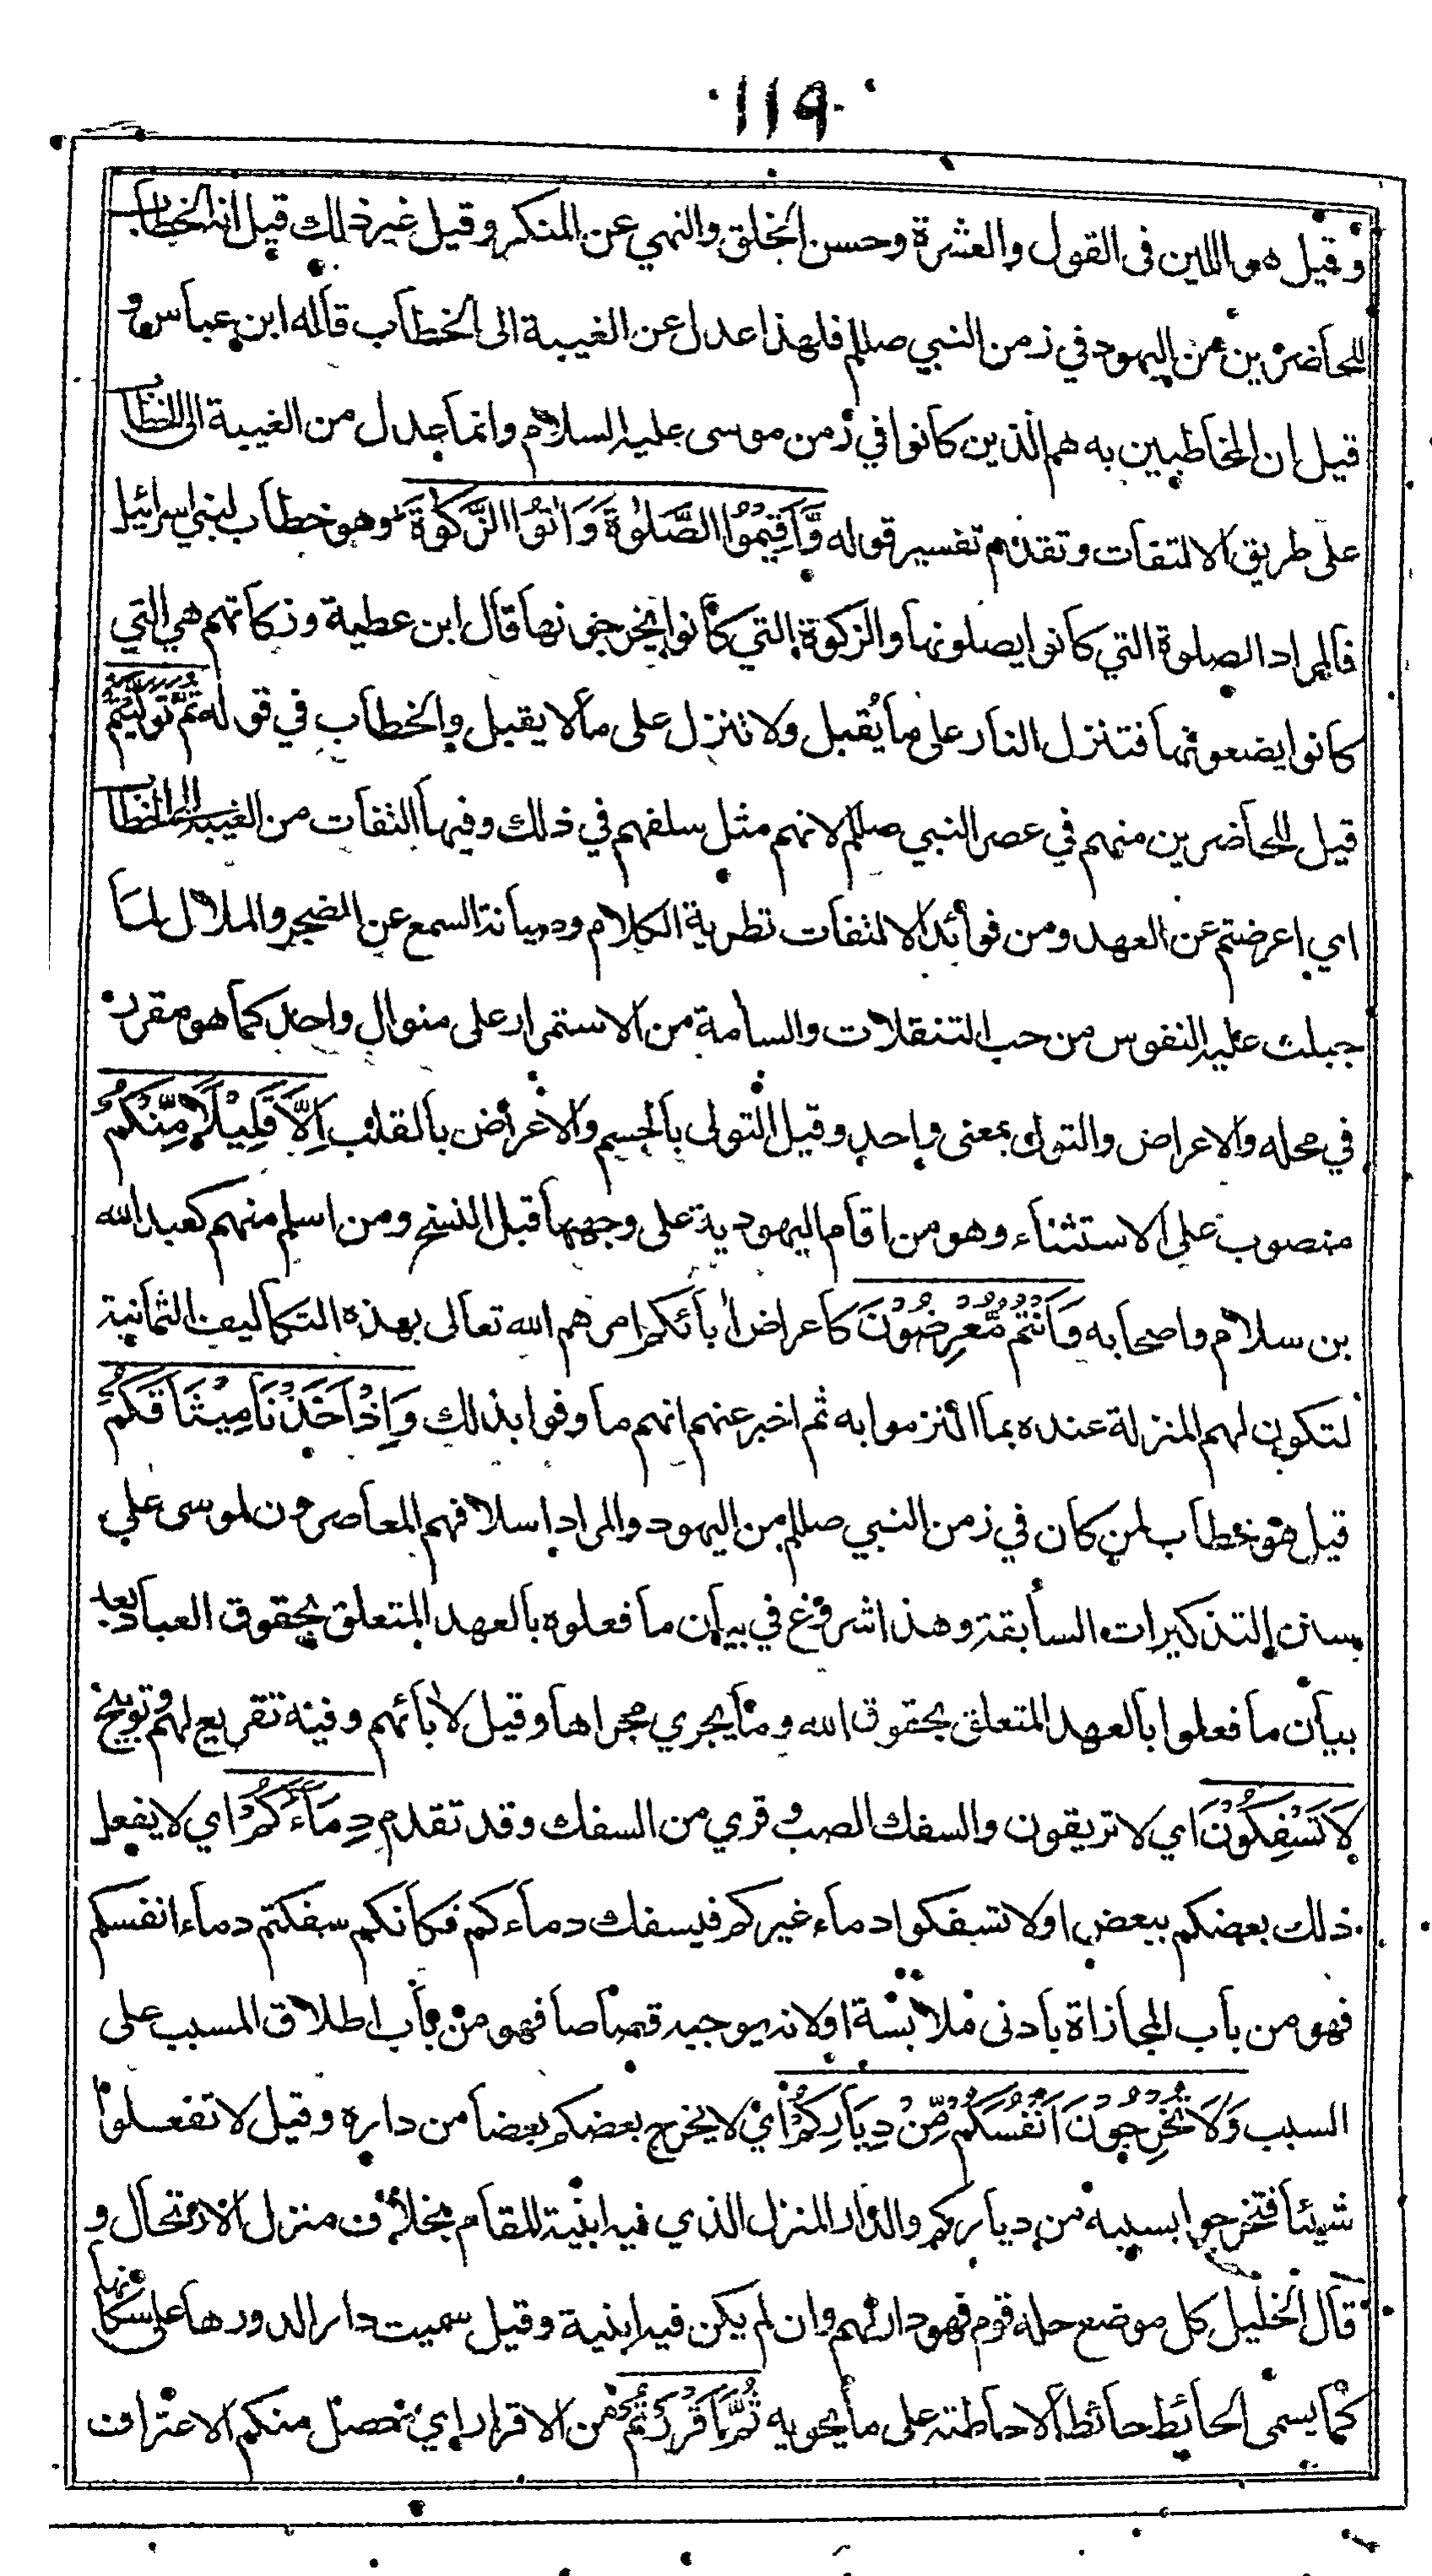 ١١٩
وقيل هو اللين في القول والعشرة وحسن الخلق والنهي عن المنكر وقيل غير ذلك قيل انه الخطاب
للحاضرين من اليهود في زمن النبي صللم فلهذا عدل عن الغيبة الى الخطاب قاله ابن عباس و
قيل ان المخاطبين به هم الذين كانوا في زمن موسى عليه السلام وانما عدل من الغيبة الى الخطاب
على طريق الالتفات وتقدم تفسير قوله وَّأَقِيمُوا الصَّلٰوةَ وَاٰتُوا الزَّكٰوةَ وهو خطاب لبني اسرائيل
فالمراد الصلوة التي كانوا يصلونها والزكوة التي كانوا يخرجونها قال ابن عطية وزكاتهم هي التي
كانوا يضعونها فتنزل النار على ما يُقبل ولا تنزل على مالا يقبل والخطاب في قوله ثُمَّ تَوَلَّيْتُمْ
قيل للحاضرين منهم في عصر النبي صللم لانهم مثل سلفهم في ذلك وفيها التفات من الغيبة الى الخطاب
اي اعرضتم عن العهد ومن فوائد الالتفات تطرية الكلام وصيانة السمع عن الضجر والملال لما
جبلت عليه النفوس من حب التنقلات والسامة من الاستمرار على منوال واحد كما هو مقرر
في محله والاعراض والتولي بمعنى واحد وقيل التولي بالجسم والاعراض بالقلب اِلَّا قَلِيْلًا مِّنْكُمْ
منصوب على الاستثناء وهو من اقام اليهودية على وجهها قبل النسخ ومن اسلم منهم كعبد الله
بن سلام واصحابه وَاَنْتُمْ مُّعْرِضُوْنَ كاعراض اٰبائكم امرهم الله تعالى بهذه التكاليف الثمانية
لتكون لهم المنزلة عنده بما التزموا به ثم اخبر عنهم انهم ما وفوا بذلك وَاِذْ اَخَذْنَا مِيْثَاقَكُمْ
قيل هو خطاب لمن كان في زمن النبي صللم من اليهود والمراد اسلافهم المعاصرون لموسى على
سنن التذكيرات السابقة وهذا شروع في بيان ما فعلوه بالعهد المتعلق بحقوق العباد بعد
بيان ما فعلوا بالعهد المتعلق بحقوق الله وما يجري مجراها وقيل لاٰبائهم وفيه تقريع لهم وتوبيخ
لَا تَسْفِكُوْنَ اي لا تريقون والسفك الصب وقري من السفك وقد تقدم دِمَآءَكُمْ اي لا يفعل
ذلك بعضكم ببعض اولا تسفكوا دماء غيركم فيسفك دماءكم فكانكم سفكتم دماء انفسكم
فهو من باب المجازاة بادنى ملابسة اولانه يوجبه قصاصا فهو من باب اطلاق المسبب على
السبب وَلَا تُخْرِجُوْنَ اَنْفُسَكُمْ مِّنْ دِيَارِكُمْ اي لا يخرج بعضكم بعضا من داره وقيل لا تفعلوا
شيئا فتخرجوا بسببه من دياركم والدار المنزل الذي فيه ابنية المقام بخلاف منزل الارتحال و
قال الخليل كل موضع حله قوم فهو دار لهم وان لم يكن فيه ابنية وقيل سميت دارا لدورها على سكانها
كما يسمى الحائط حائطا لاحاطته على ما يحويه ثُمَّ اَقْرَرْتُمْ من الاقرار اي حصل منكم الاعتراف